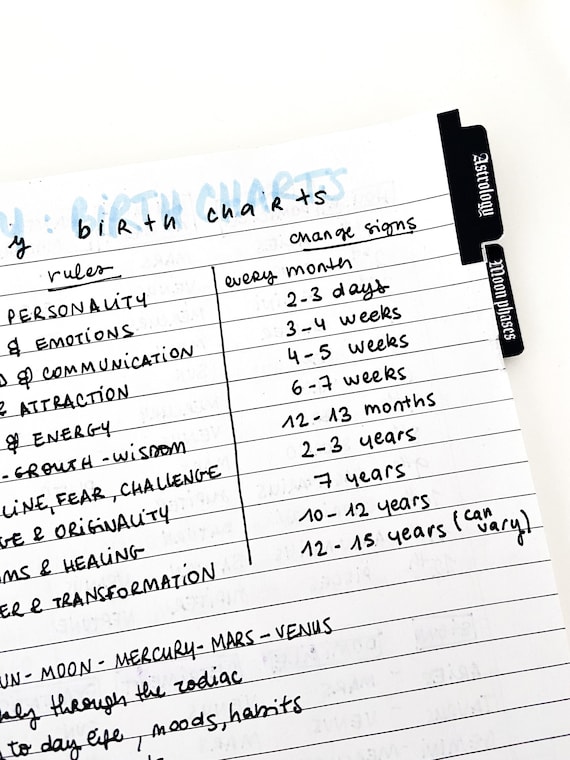 : BIRTH CHARTS
y birth charts
rules change signs
PERSONALITY every month
& EMOTIONS 2-3 days
& COMMUNICATION 3-4 weeks
& ATTRACTION 4-5 weeks
& ENERGY 6-7 weeks
-GROWTH-WISDOM 12-13 months
LINE, FEAR, CHALLENGE 2-3 years
GE & ORIGINALITY 7 years
MS & HEALING 10-12 years
ER & TRANSFORMATION 12-15 years (can vary)
UN-MOON-MERCURY-MARS-VENUS
kly through the zodiac
to day life, moods, habits
Astrology
Moon phases